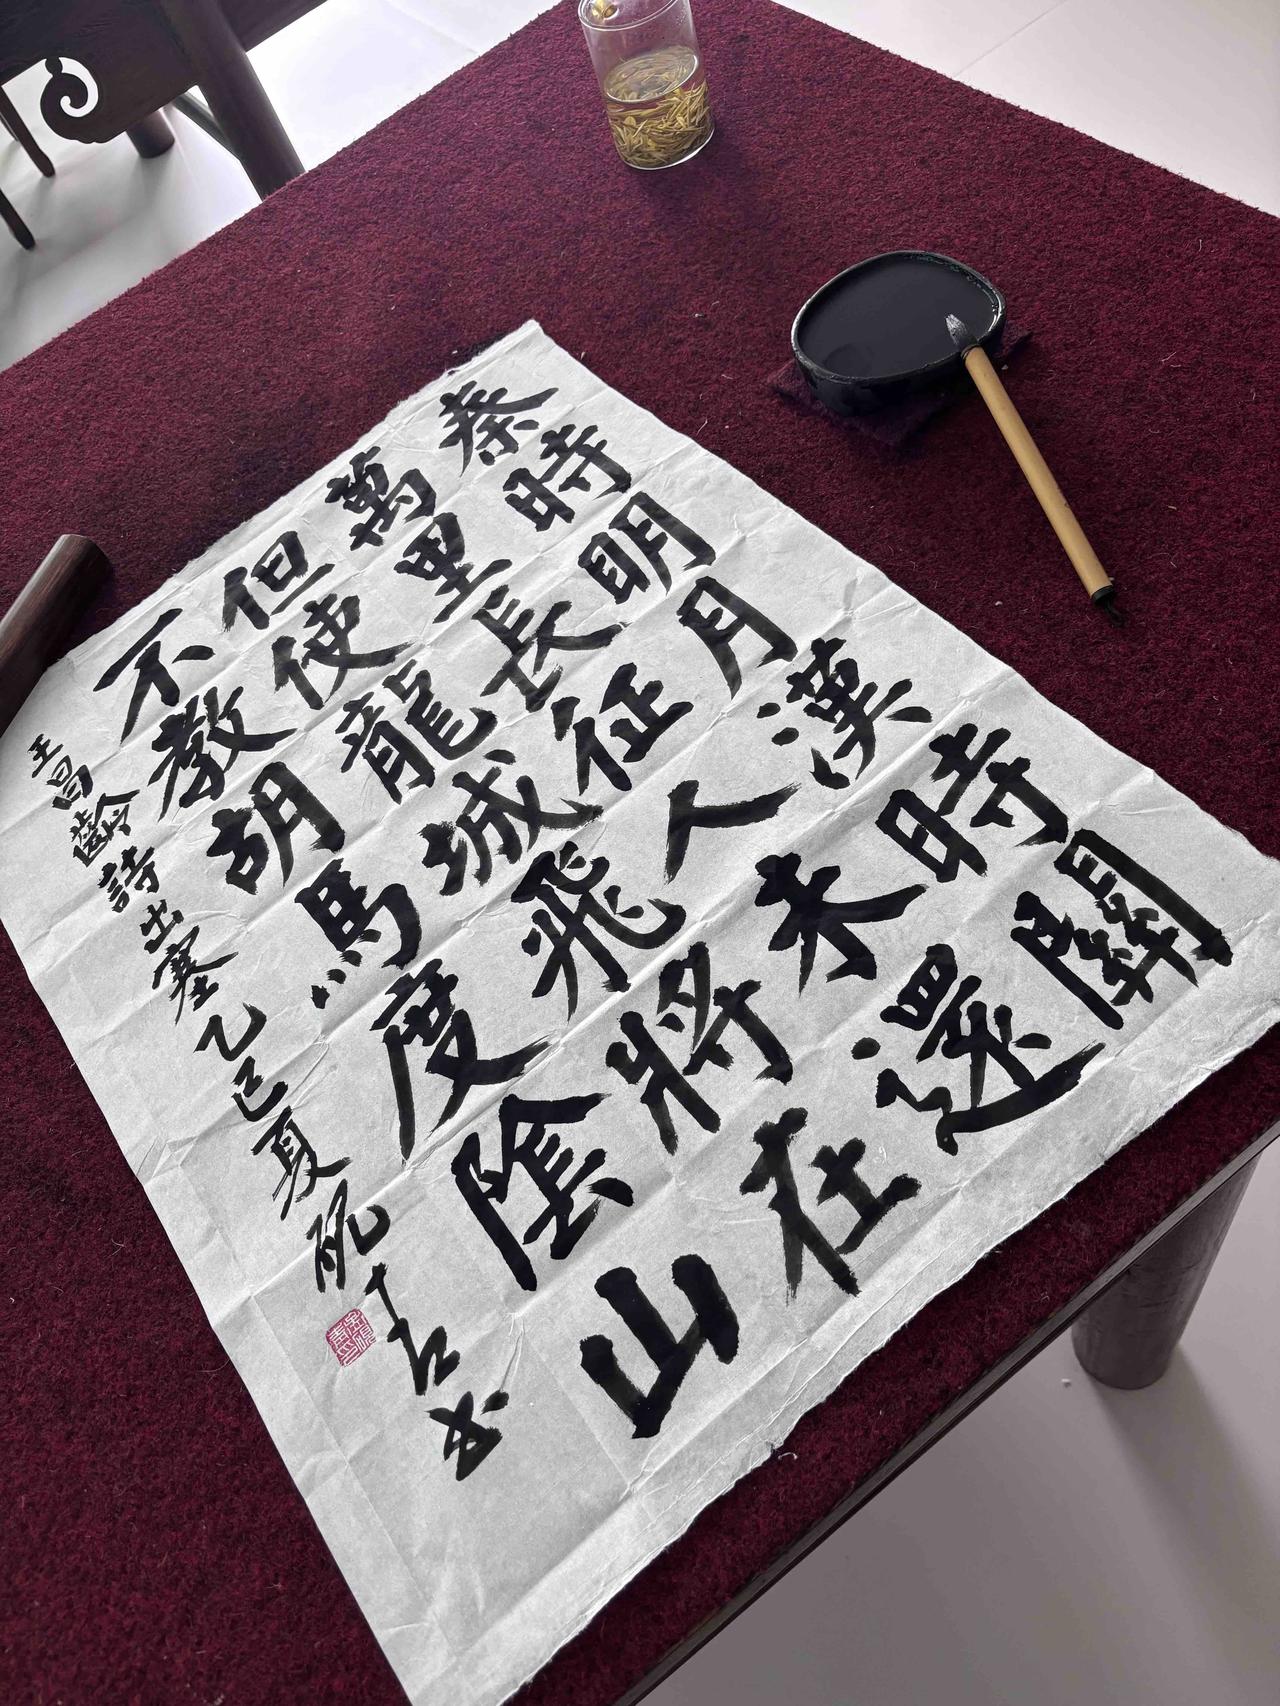 秦時明月漢時關
萬里長征人未還
但使龍城飛將在
不教胡馬度陰山
王昌齡詩出塞乙巳夏書